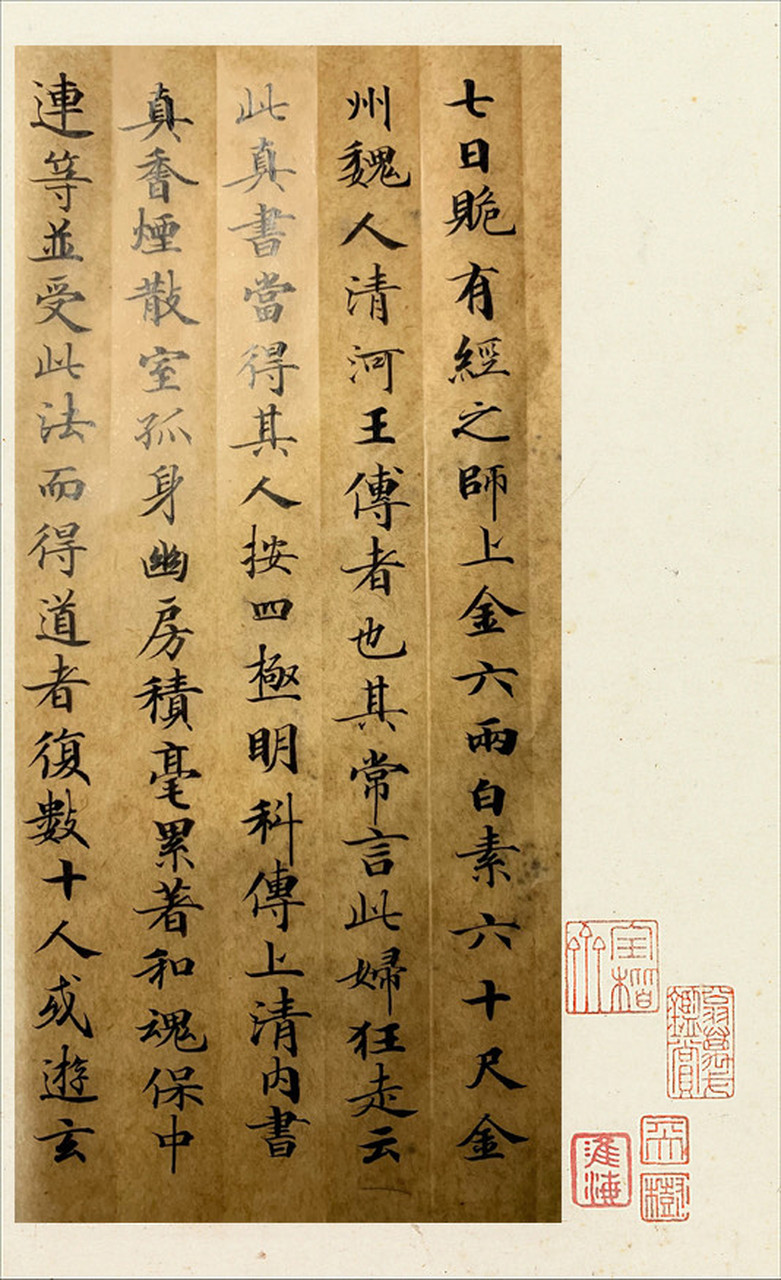 七日貽有經之師上金六兩白素六十尺金
州魏人清河王傅者也其常言此婦狂走云
此真書當得其人按四極明科傳上清內書
真香煙散室孤身幽房積毫累著和魂保中
連等並受此法而得道者復數十人或遊玄